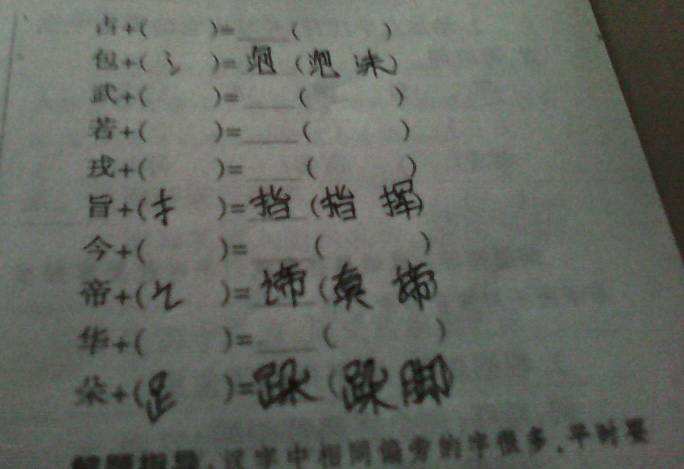 古+( )=___( )
包+(氵)=泡(泡沫)
武+( )=___( )
若+( )=___( )
戎+( )=___( )
旨+(扌)=指(指挥)
今+( )=___( )
帝+(讠)=谛(真谛)
华+( )=___( )
朵+(足)=跺(跺脚)
解题指导:汉字中相同偏旁的字很多,平时要